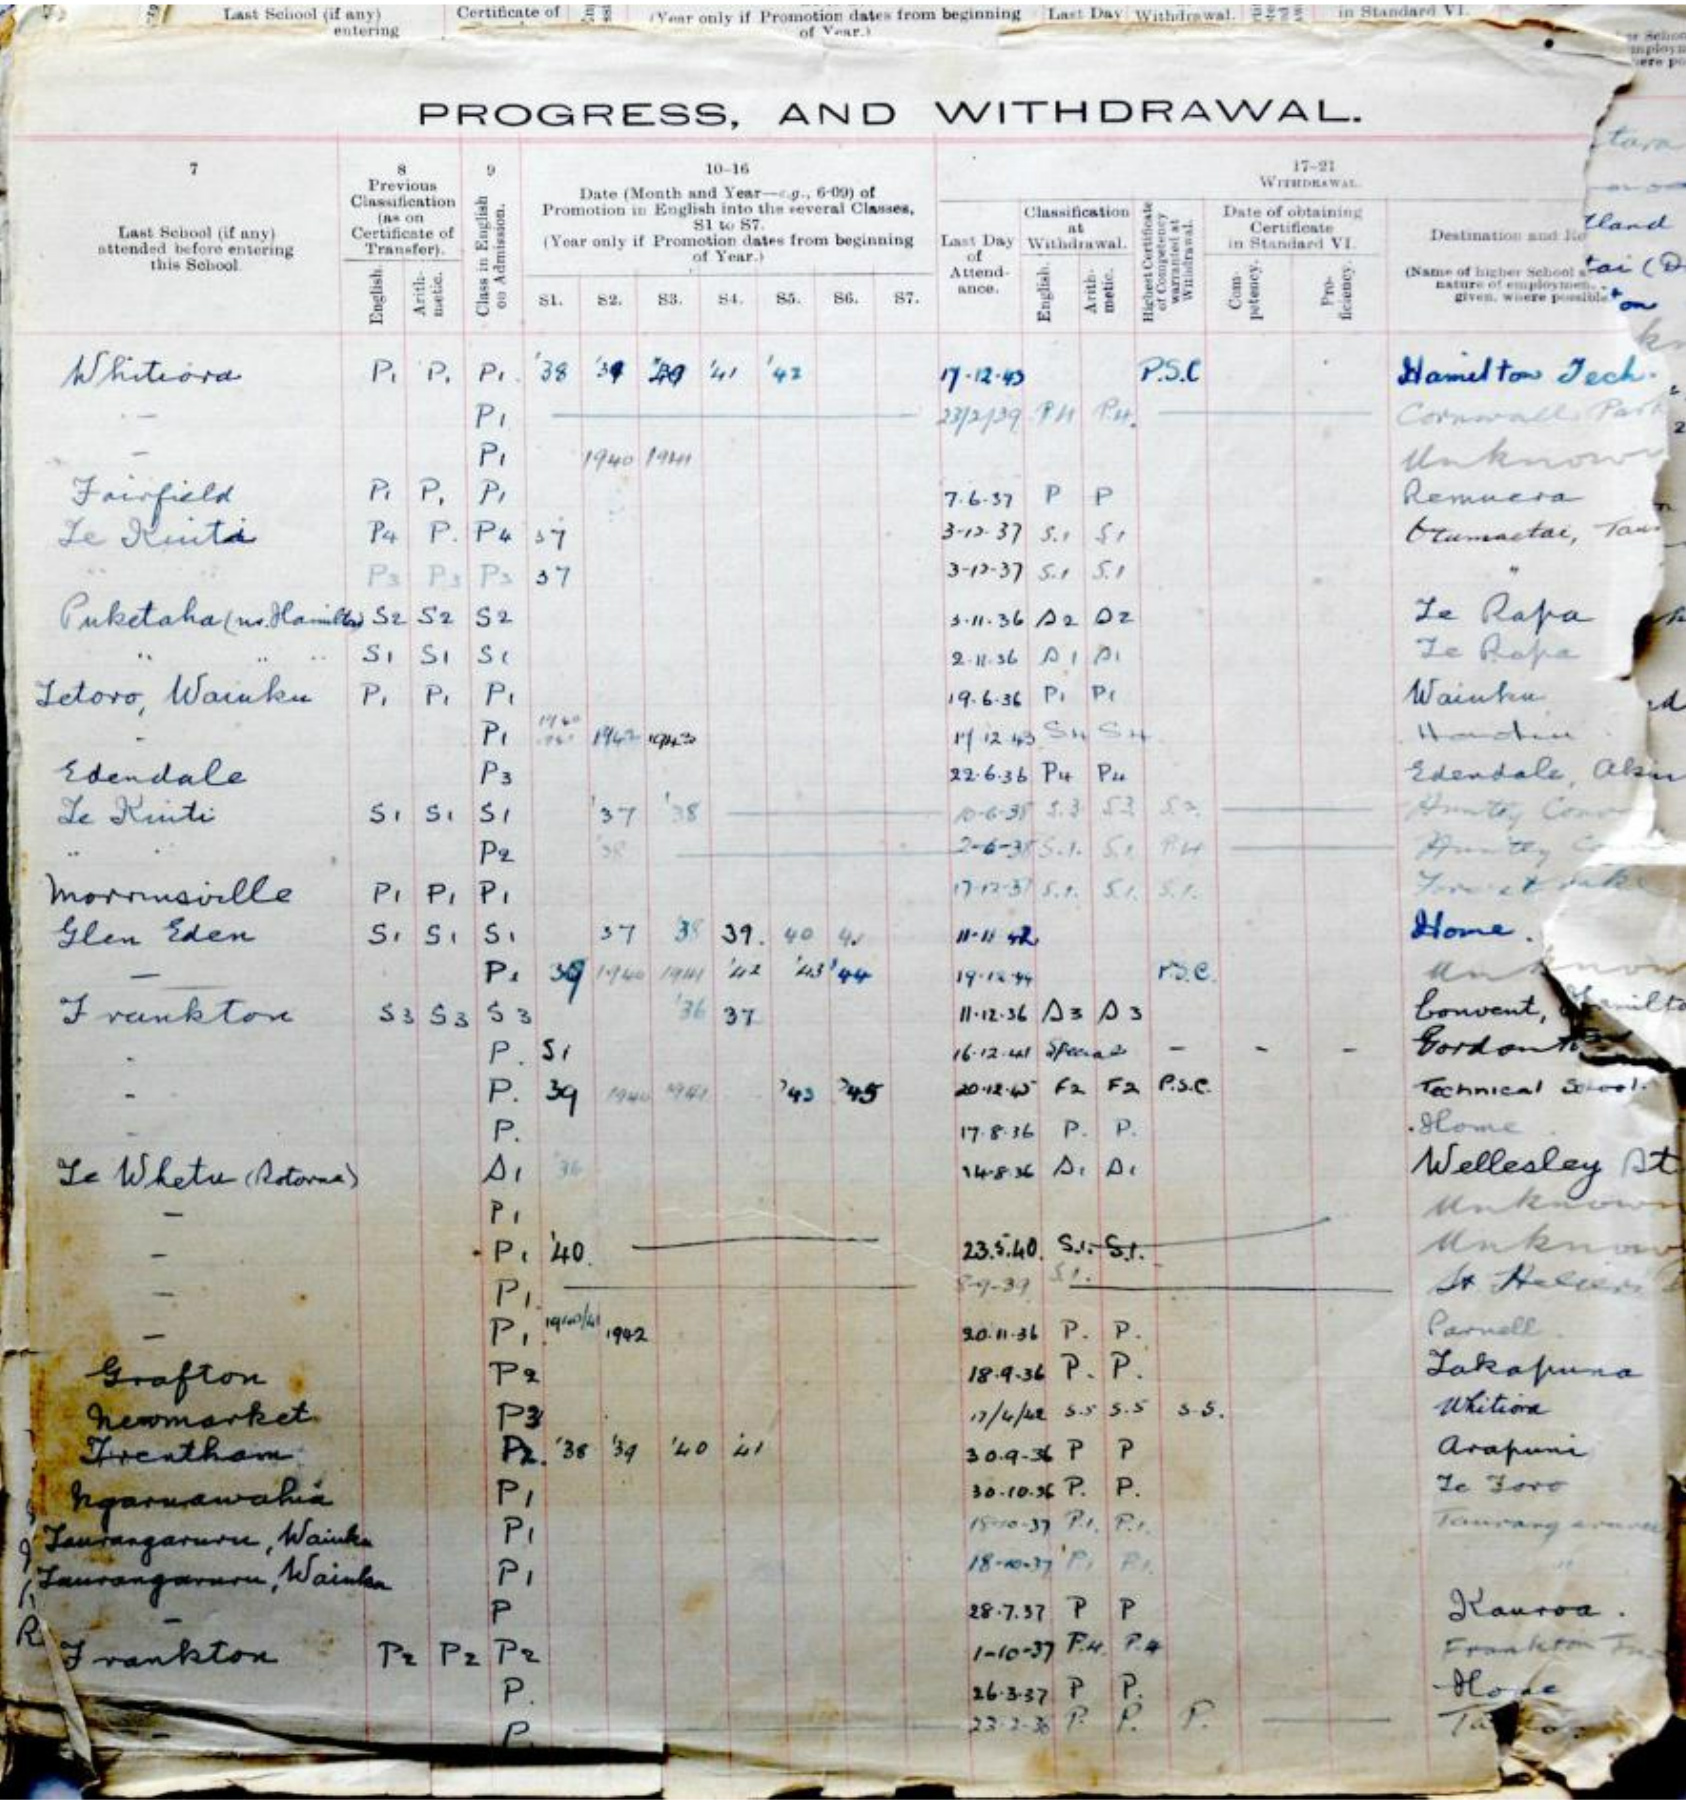 Last School (if any) Certificate of (Year only if Promotion dates from beginning Last Day Withdrawal. in Standard VI.
entering of Year.)
PROGRESS, AND WITHDRAWAL.
7 8 9 10–16 17–21
Previous Classification (as on Certificate of Transfer). Date (Month and Year—e.g., 6-09) of WITHDRAWAL.
Promotion in English into the several Classes,
S1 to S7.
(Year only if Promotion dates from beginning
of Year.)
Last School (if any)
attended before entering
this School.
English. Arithmetic. Class in English on Admission. S1. S2. S3. S4. S5. S6. S7.
Last Day of Attendance. Classification at Withdrawal. English. Arithmetic. Highest Certificate of Competency warranted at Withdrawal. Date of obtaining Certificate in Standard VI. Competency. Proficiency.
Destination and
(Name of higher School
nature of employmen
given, where possible
Whitiora P1 P1 P1 '38 '39 '41 '42 17-12-43 P.S.C Hamilton Tech.
– P1 23/2/39 P4 P4. Cornwall Park
– P1 1940 1941 Unknown
Fairfield P1 P1 P1 7.6.37 P P Remuera
Te Kuiti P4 P. P4 37 3-12-37 S.1 S1 Otumoetai, Tau
" P3 P3 P3 37 3-12-37 S.1 S.1 "
Puketaha (nr. Hamilton) S2 S2 S2 3.11.36 S2 S2 Te Rapa
" " " S1 S1 S1 2.11.36 S1 S1 Te Rapa
Tetoro, Waiuku P1 P1 P1 19.6.36 P1 P1 Waiuku
- P1 1942 1943 17/12 43 S4 S4
Edendale P3 22.6.36 P4 P4 Edendale,
Te Kuiti S1 S1 S1 '37 '38 10-6-38 S.3 S3 S3 Huntly Conv
" " P2 '38 2-6-38 S.1. S.1 P4 Huntly C
Morrinsville P1 P1 P1 17-12-37 S.1. S.1. S.1.
Glen Eden S1 S1 S1 37 38 39. 40 41 11-11 42 Home.
– P1 39 1940 1941 '42 '43 '44 19-12-44 P.S.C. Unknow
Frankton S3 S3 S3 '36 37 11.12.36 S3 S3 Convent, Hamilto
- P. S1 16.12.41 Special - - - Gordonto
- P. 39 1940 1941 '43 '45 20.12.45 F2 F2 P.S.C. Technical School.
- P. 17.8.36 P. P. Home
Te Whetu (Rotorua) S1 36 14.8.36 S1 S1 Wellesley St
– P1 Unknown
– P1 '40. 23.5.40. S.1. S.1. Unknow
– P1. 8-9-39 S.1. St Heliers
– P1 1940/41 1942 20.11.36 P. P. Parnell
Grafton P2 18.9.36 P. P. Takapuna
Newmarket P3 17/4/42 S.5 S.5 S.5. Whitiora
Trentham P2. '38 '39 '40 '41 30.9-36 P P Arapuni
Ngaruawahia P1 30.10.36 P. P. Te Toro
Taurangaruru, Waiuku P1 18-10-37 P.1. P.1. Taurangaruru
Taurangaruru, Waiuku P1 18-10-37 P1 P1. "
– P 28.7.37 P P Kauroa.
Frankton P2 P2 P2 1-10-37 P.4. P.4 Frankton
P. 26.3.37 P P. Home
- P 23-2-36 P. P. P.